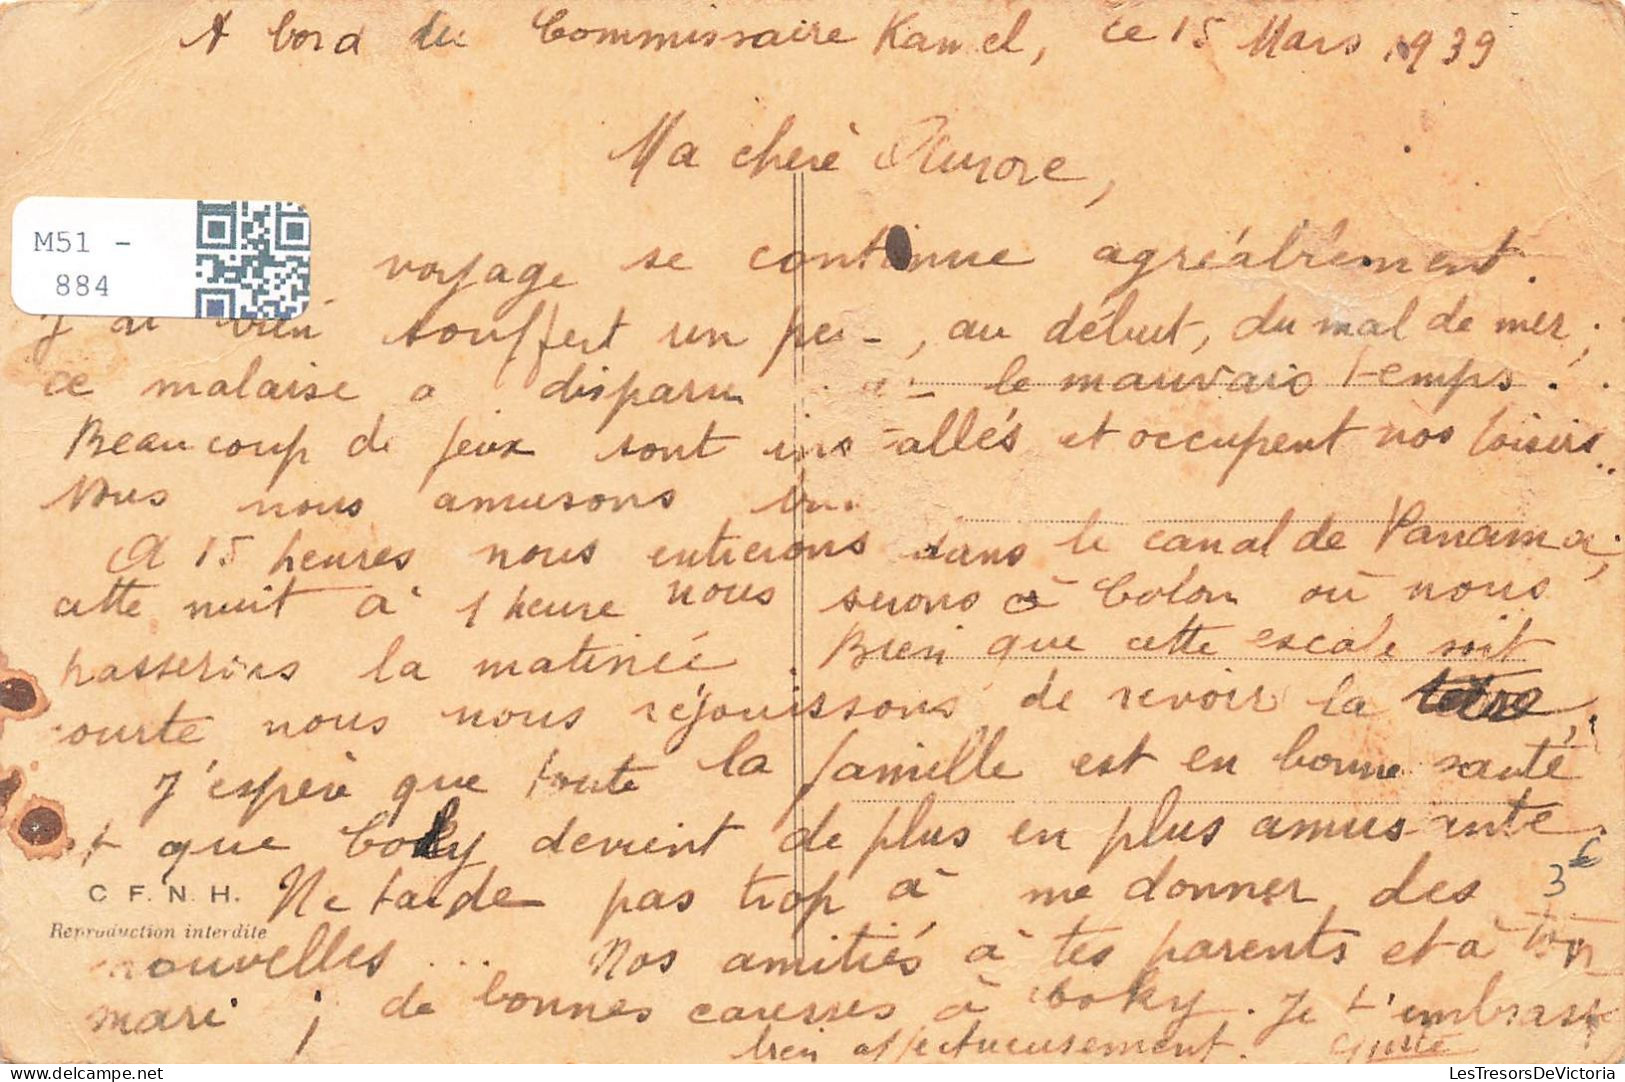 A bord du Commissaire Ramel, le 15 Mars 1939
Ma chère Aurore,
M51 -
884
voyage se continue agréablement.
J'ai bien souffert un peu, au début, du mal de mer;
ce malaise a disparu le mauvais temps.
Beaucoup de jeux sont installés et occupent nos loisirs..
Nous nous amusons
A 15 heures nous entrerons dans le canal de Panama;
cette nuit à 1 heure nous serons à Colon où nous
passerons la matinée. Bien que cette escale soit
courte nous nous réjouissons de revoir la terre.
J'espère que toute la famille est en bonne santé
et que Boky devient de plus en plus amusante.
C F. N. H.
3€
Ne tarde pas trop à me donner des
Reproduction interdite
nouvelles... Nos amitiés à tes parents et à ton
mari ; de bonnes caresses à Boky. Je t'embrasse
bien affectueusement.
LesTresorsDeVictoria